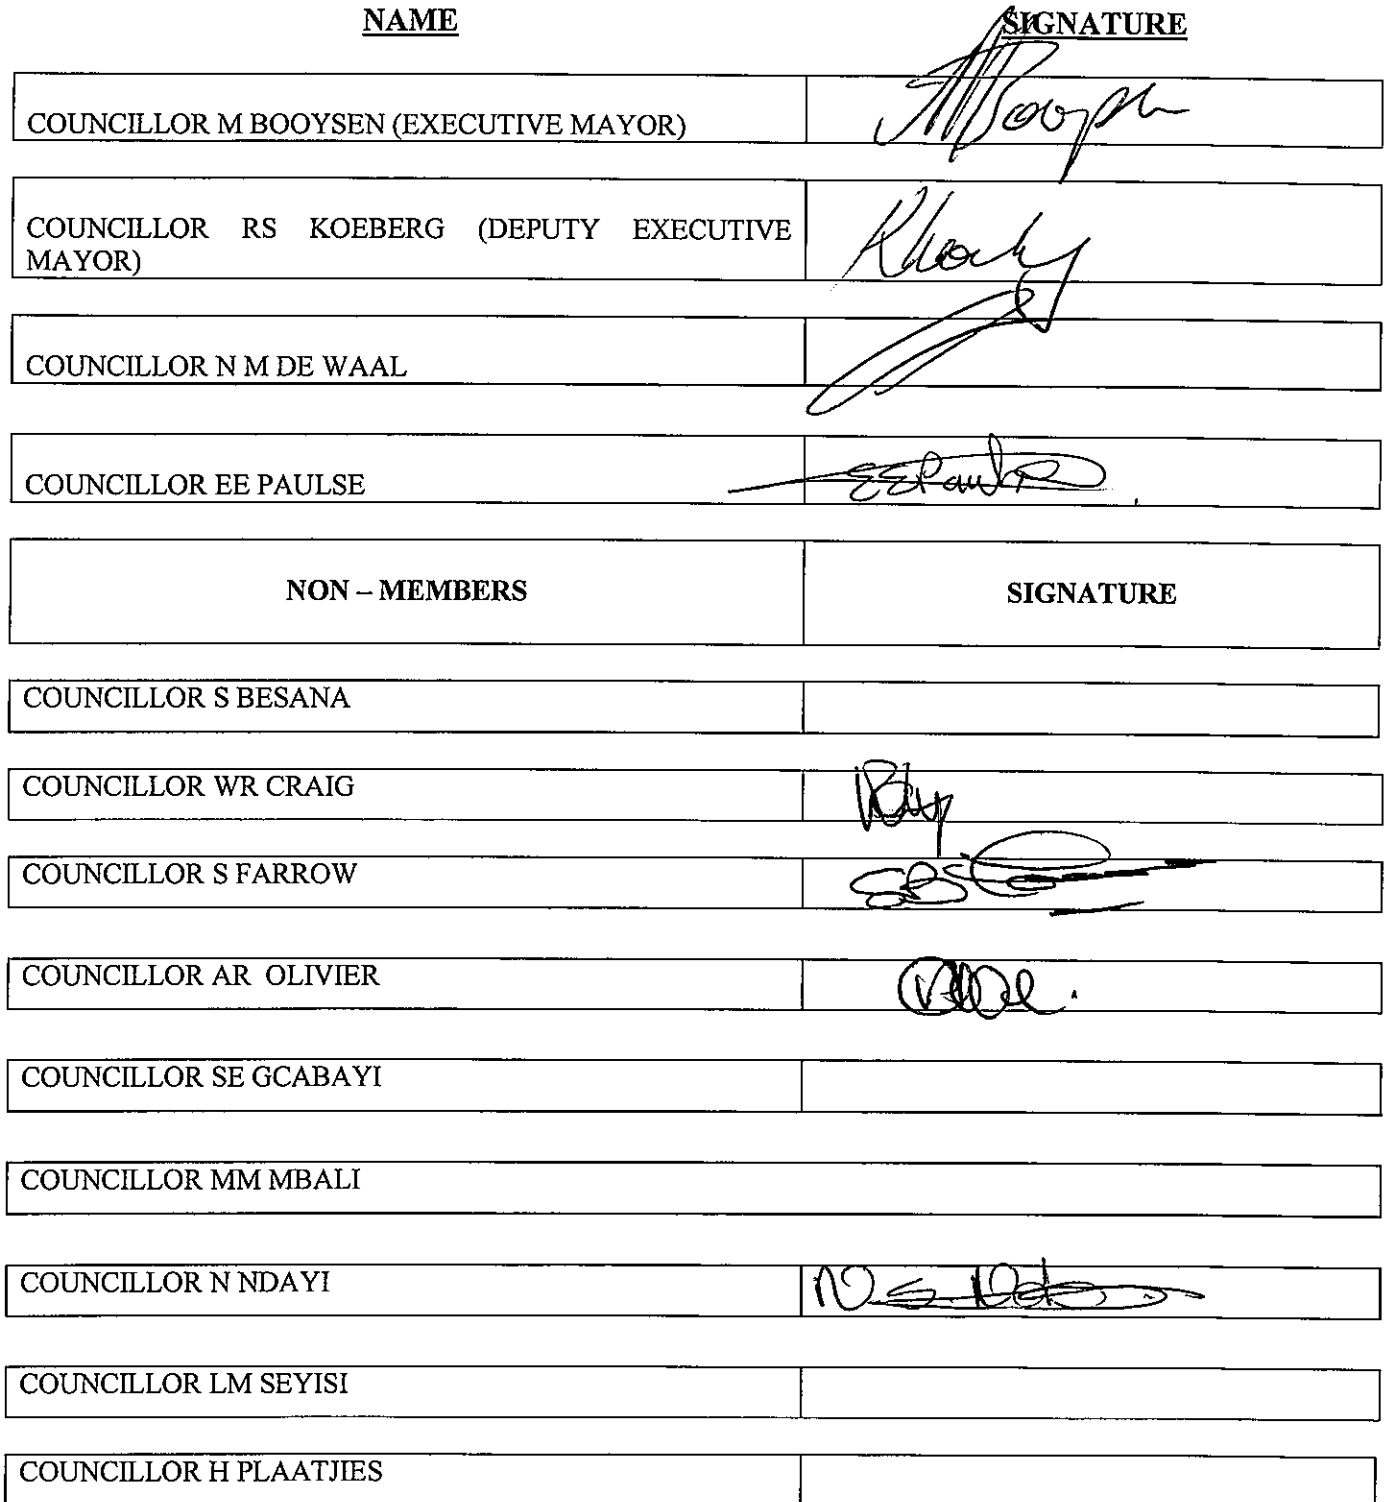 NAME SIGNATURE
COUNCILLOR M BOOYSEN (EXECUTIVE MAYOR)
COUNCILLOR RS KOEBERG (DEPUTY EXECUTIVE
MAYOR)
COUNCILLOR N M DE WAAL
COUNCILLOR EE PAULSE
NON – MEMBERS SIGNATURE
COUNCILLOR S BESANA
COUNCILLOR WR CRAIG
COUNCILLOR S FARROW
COUNCILLOR AR OLIVIER
COUNCILLOR SE GCABAYI
COUNCILLOR MM MBALI
COUNCILLOR N NDAYI
COUNCILLOR LM SEYISI
COUNCILLOR H PLAATJIES